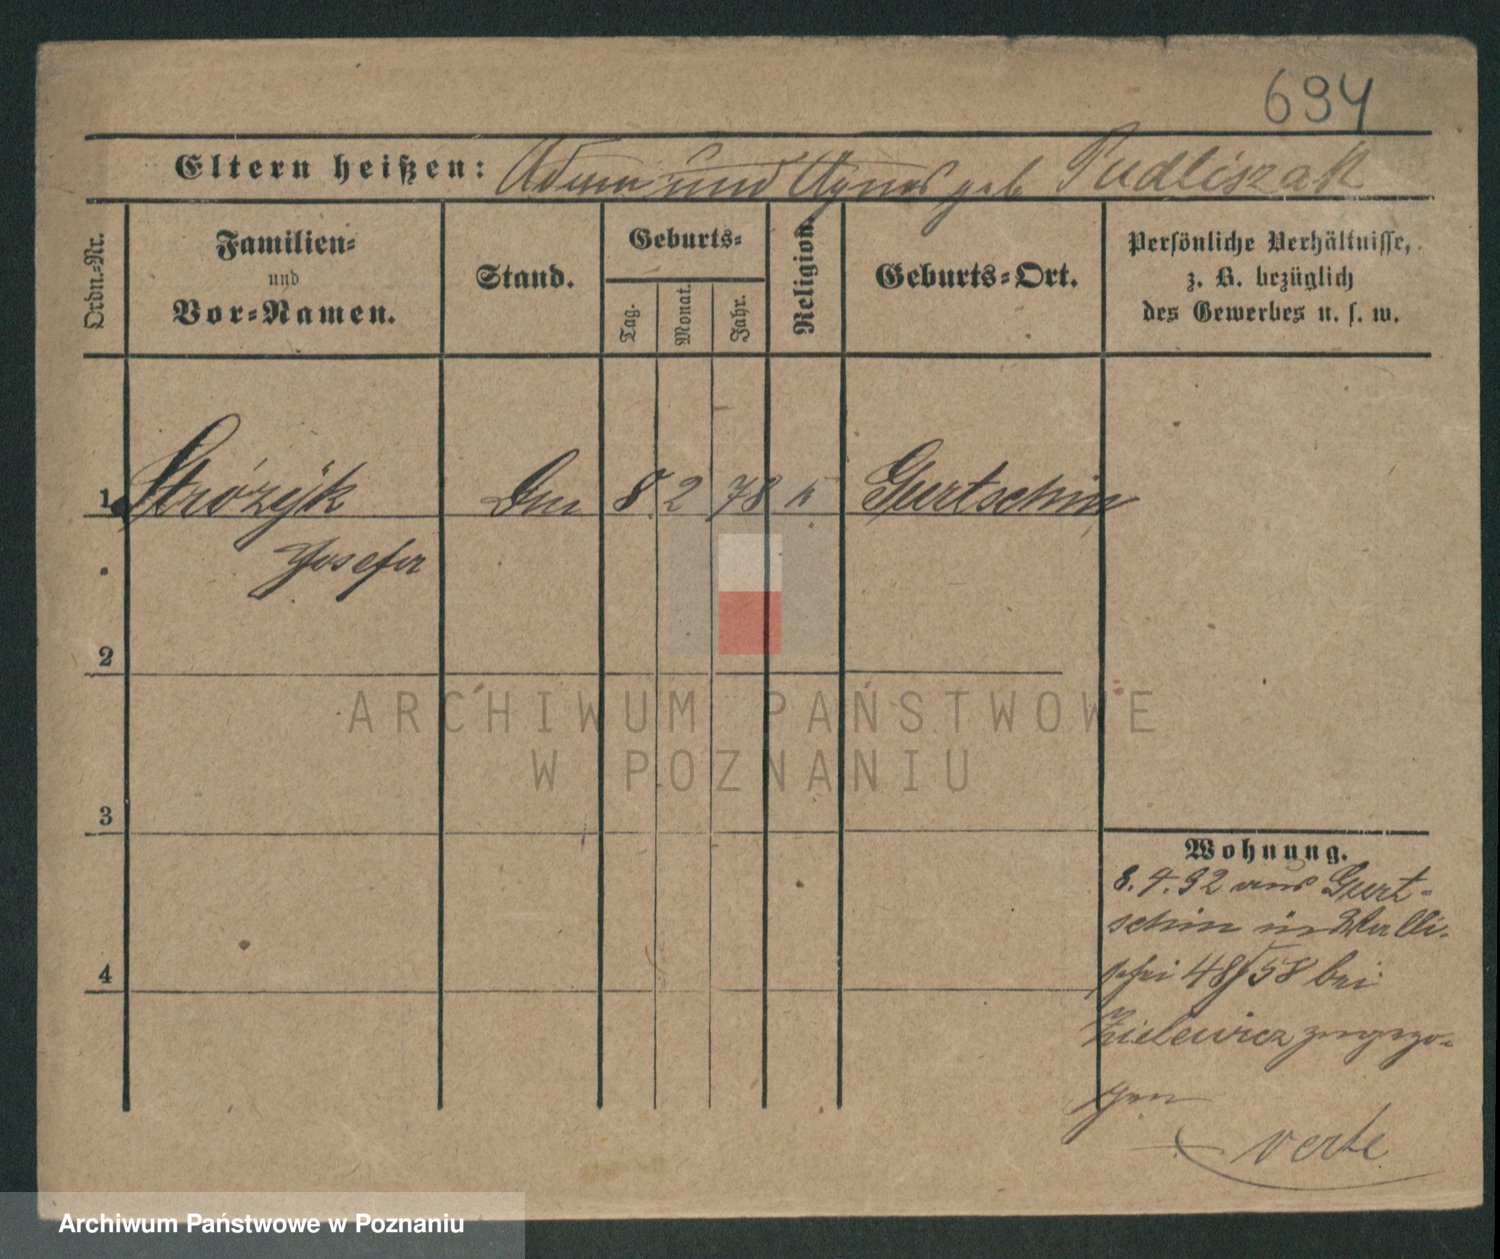 694
Eltern heißen: Adam und Agnes geb Pudliszak
Ordn.-Nr.
Familien-
und
Vor-Namen.
Stand.
Geburts-
Tag.
Monat.
Jahr.
Religion.
Geburts-Ort.
Persönliche Verhältnisse,
z. B. bezüglich
des Gewerbes u. s. w.
1 Strózÿk 8 2 78 k Gurtschin
Josefa
2
3
4
Wohnung.
8.4.92 aus Gurt-
schin in Walli-
schei 48/58 bei
Zielewicz zugezo-
gen
verte
ARCHIWUM PAŃSTWOWE
W POZNANIU
Archiwum Państwowe w Poznaniu